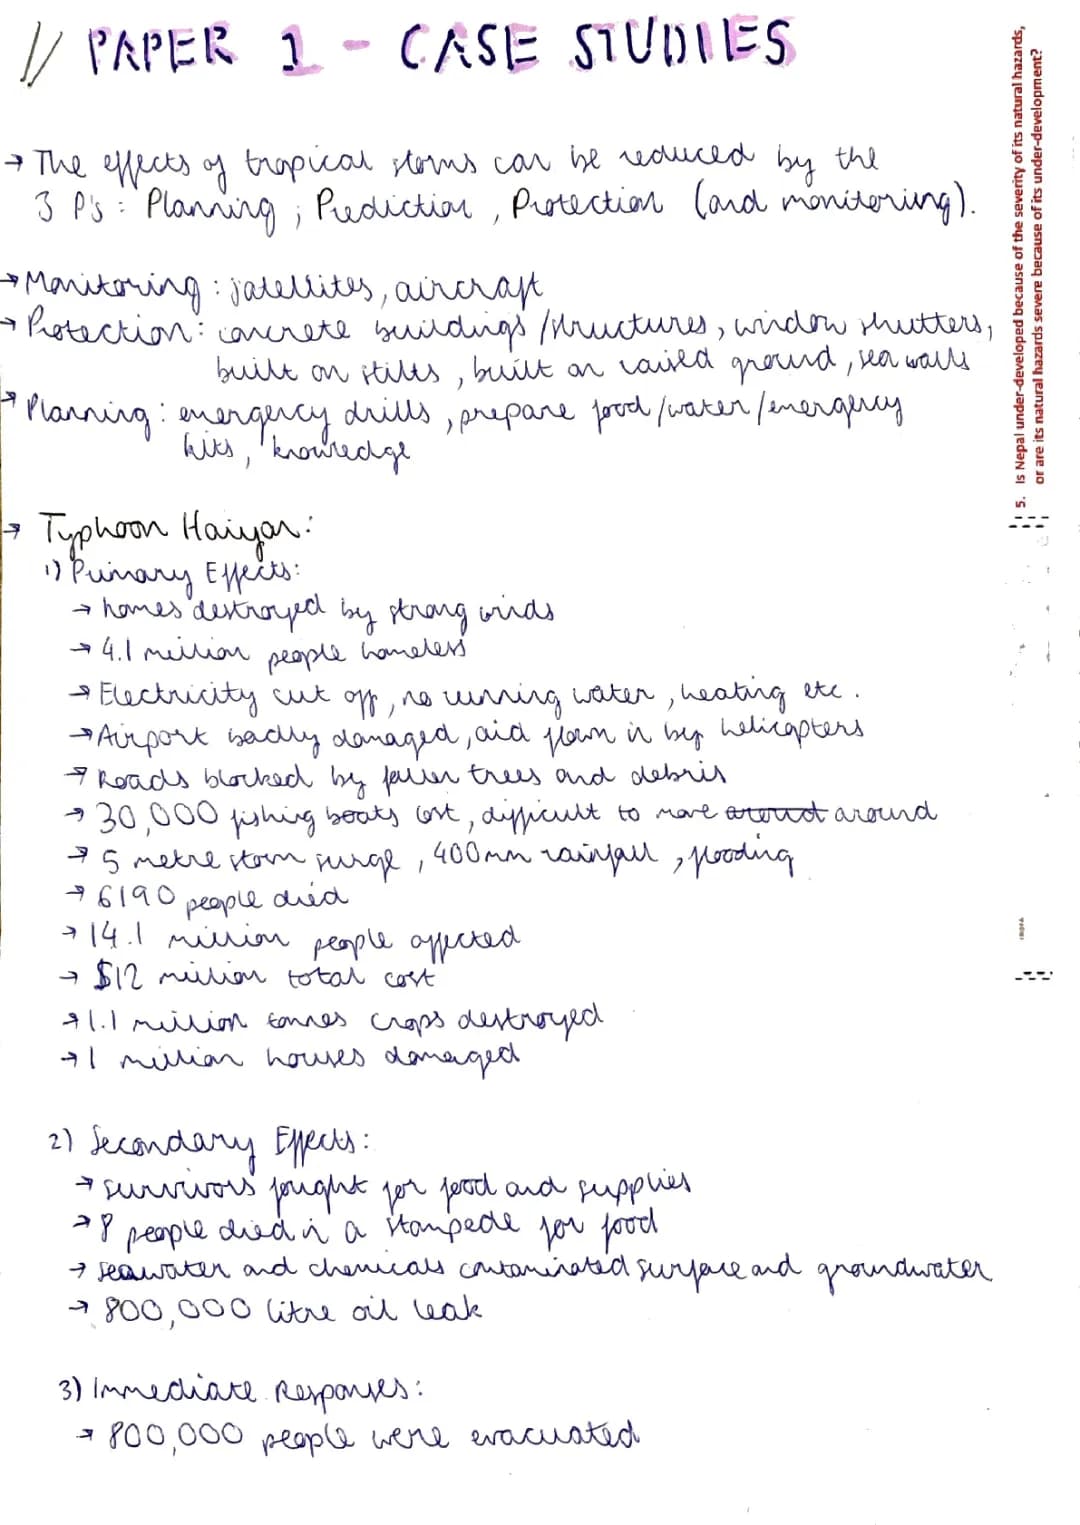 // PAPER 1 - CASE STUDIES
→ The effects of tropical storms can be reduced by the
3 P's : Planning ; Prediction , Protection (and monitoring).
→ Monitoring : satellites, aircraft
→ Protection : concrete buildings /structures, window shutters,
built on stilts , built on raised ground, sea walls
→ Planning : emergency drills , prepare food /water /emergency
kits, knowledge
→ Typhoon Haiyan:
1) Primary Effects:
→ homes destroyed by strong winds
→ 4.1 million people homeless
→ Electricity cut off, no running water, heating etc.
→ Airport badly damaged, aid flown in by helicopters
→ Roads blocked by fallen trees and debris
→ 30,000 fishing boats lost, difficult to move around around
→ 5 metre storm surge , 400mm rainfall , flooding
→ 6190 people died
→ 14.1 million people affected
→ $12 million total cost
→ 1.1 million tonnes crops destroyed
→ 1 million houses damaged
2) Secondary Effects:
→ survivors fought for food and supplies
→ 8 people died in a stampede for food
→ seawater and chemicals contaminated surface and groundwater
→ 800,000 litre oil leak
3) Immediate Responses:
→ 800,000 people were evacuated
5. Is Nepal under-developed because of the severity of its natural hazards,
or are its natural hazards severe because of its under-development?